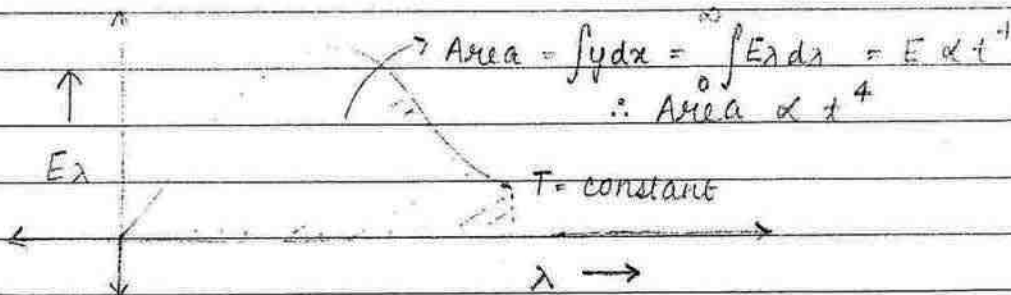 Area = ∫ydx = ₀∫^∞ Eλ dλ = E ∝ t⁴
∴ Area ∝ t⁴
Eλ
T = constant
λ →